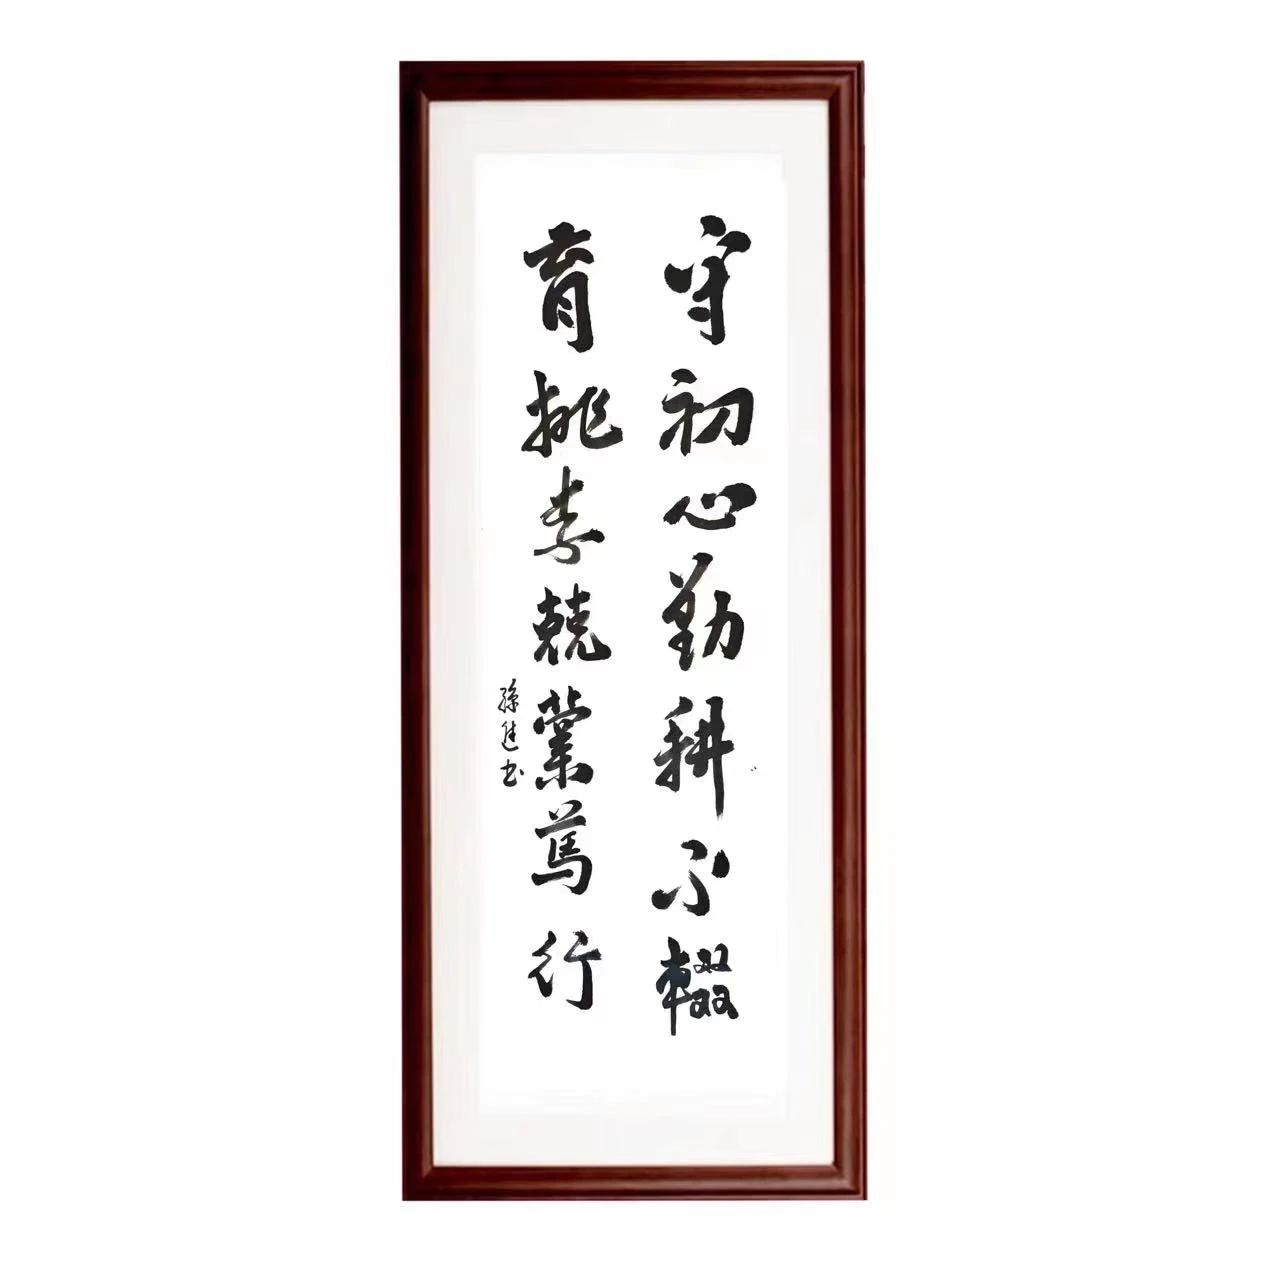 守初心勤耕不輟
育桃李兢業篤行
孫進书